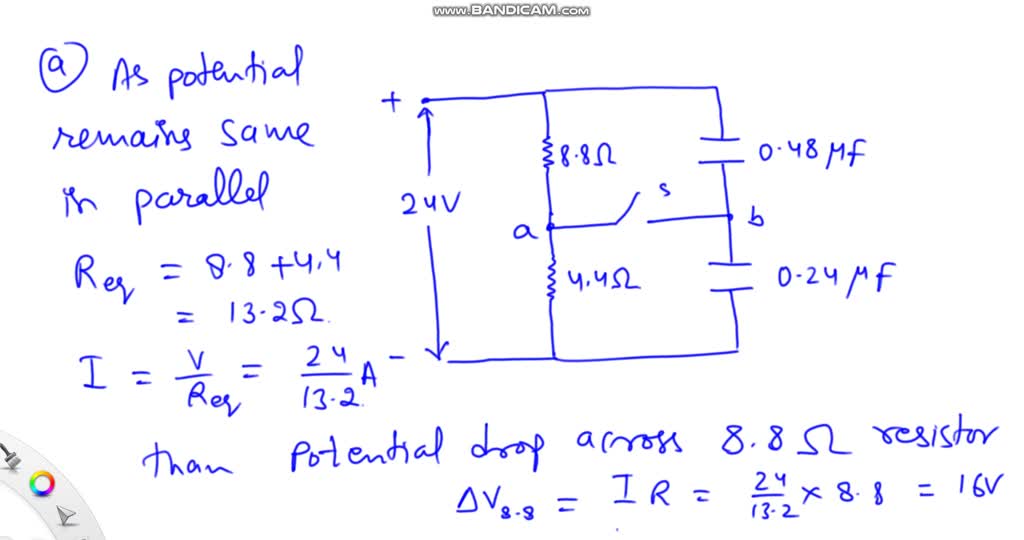 www.BANDICAM.com
(a) As potential
remains same
in parallel
Req = 8.8 + 4.4
= 13.2Ω.
I = V/Req = 24/13.2 A
+
24V
-
8.8Ω
0.48 μF
a
s
b
4.4Ω
0.24 μF
than potential drop across 8.8 Ω resistor
ΔV8.8 = I R = 24/13.2 × 8.8 = 16V